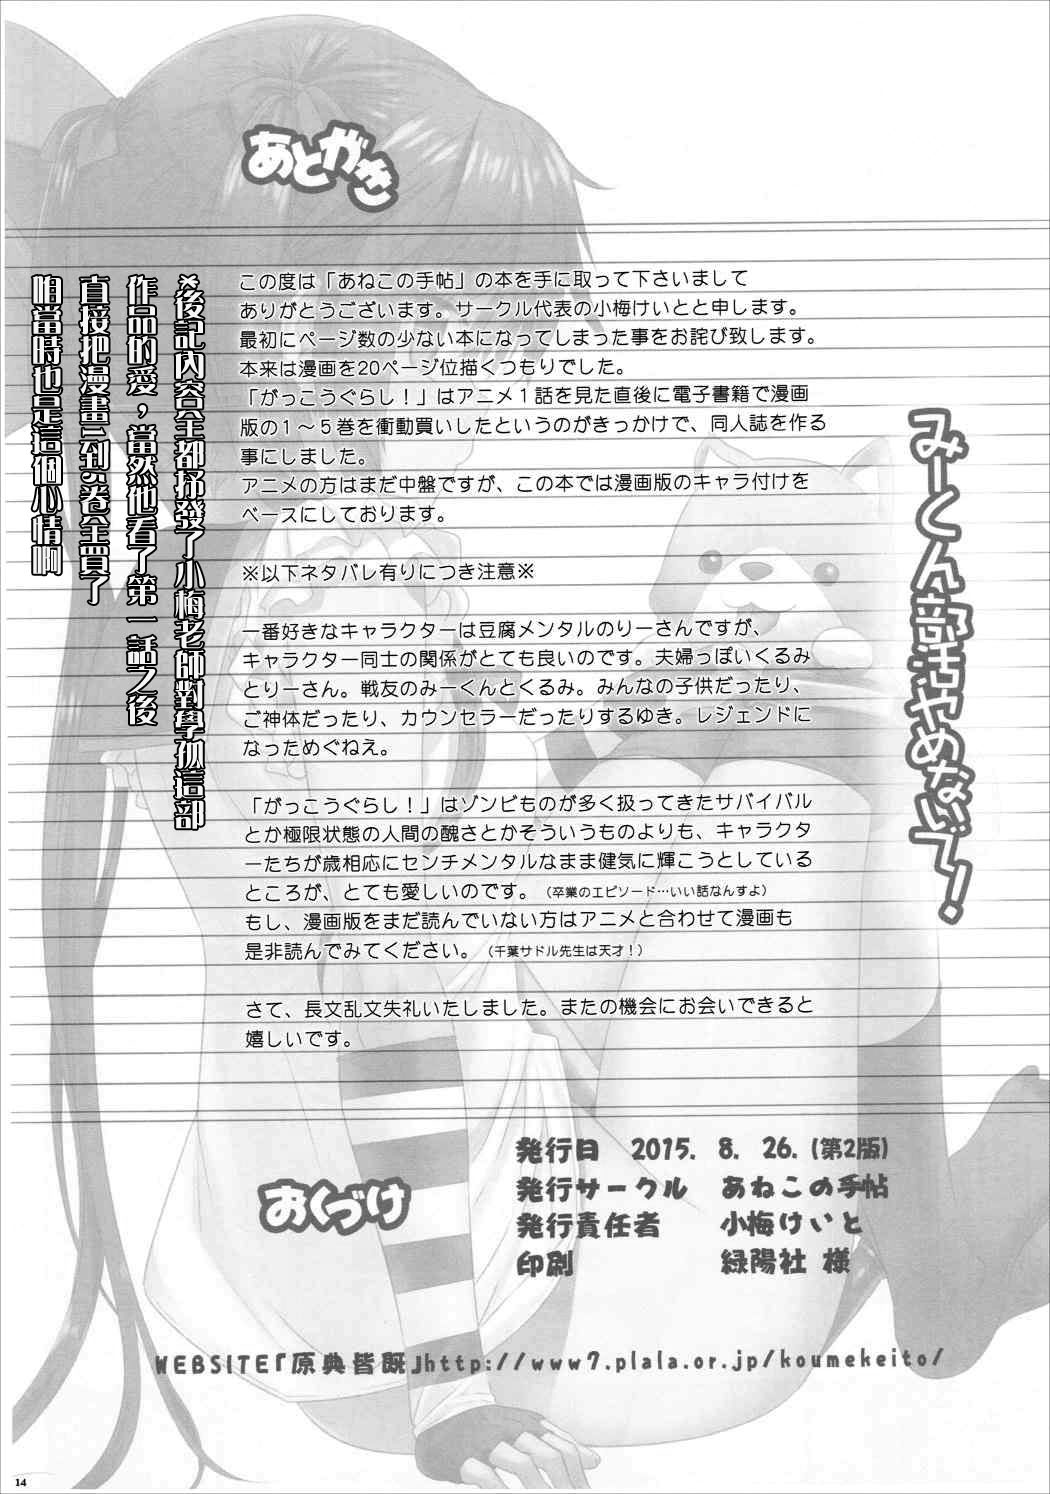 あとがき
この度は「あねこの手帖」の本を手に取って下さいまして
ありがとうございます。サークル代表の小梅けいとと申します。
最初にページ数の少ない本になってしまった事をお詫び致します。
本来は漫画を20ページ位描くつもりでした。
「がっこうぐらし！」はアニメ１話を見た直後に電子書籍で漫画
版の１～５巻を衝動買いしたというのがきっかけで、同人誌を作る
事にしました。
アニメの方はまだ中盤ですが、この本では漫画版のキャラ付けを
ベースにしております。
※以下ネタバレ有りにつき注意※
一番好きなキャラクターは豆腐メンタルのりーさんですが、
キャラクター同士の関係がとても良いのです。夫婦っぽいくるみ
とりーさん。戦友のみーくんとくるみ。みんなの子供だったり、
ご神体だったり、カウンセラーだったりするゆき。レジェンドに
なっためぐねえ。
「がっこうぐらし！」はゾンビものが多く扱ってきたサバイバル
とか極限状態の人間の醜さとかそういうものよりも、キャラクタ
ーたちが歳相応にセンチメンタルなまま健気に輝こうとしている
ところが、とても愛しいのです。（卒業のエピソード…いい話なんすよ）
もし、漫画版をまだ読んでいない方はアニメと合わせて漫画も
是非読んでみてください。（千葉サドル先生は天才！）
さて、長文乱文失礼いたしました。またの機会にお会いできると
嬉しいです。
※後記內容全都抒發了小梅老師對學孤這部
作品的愛，當然他看了第一話之後
直接把漫畫1到5卷全買了
怕當時也是這個心情啊
みーくん部活やめないで！
おくづけ
発行日 2015. 8. 26. (第2版)
発行サークル あねこの手帖
発行責任者 小梅けいと
印刷 緑陽社 様
WEBSITE『原典皆既』http://www7.plala.or.jp/koumekeito/
14